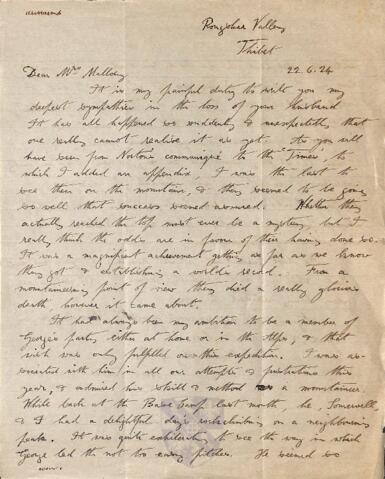 Rongshar Valley
Thibet
Dear Mrs Mallory 22.6.24
It is my painful duty to write you my
deepest sympathies in the loss of your husband
It has all happened so suddenly & unexpectedly that
one really cannot realise it as yet. As you will
have seen from Norton's communiqué to the "Times", to
which I added an appendix, I was the last to
see them on the mountain, & they seemed to be going
so well that success seemed assured. Whether they
actually reached the top must ever be a mystery, but I
really think the odds are in favour of their having done so.
It was a magnificent achievement getting as far as we know
they got & establishing a world's record. From a
mountaineering point of view they died a really glorious
death, however it came about.
It had always been my ambition to be a member of
George's party, either at home or in the Alps, & that
wish was only fulfilled on this expedition. I was as-
sociated with him in all our attempts & frustrations this
year, & admired his skill & method as a mountaineer
While back at the Base Camp last month, he, Somervell,
& I had a delightful day's rock climbing on a neighbouring
peak. It was quite exhilarating to see the way in which
George led the not too easy pitches. He seemed so